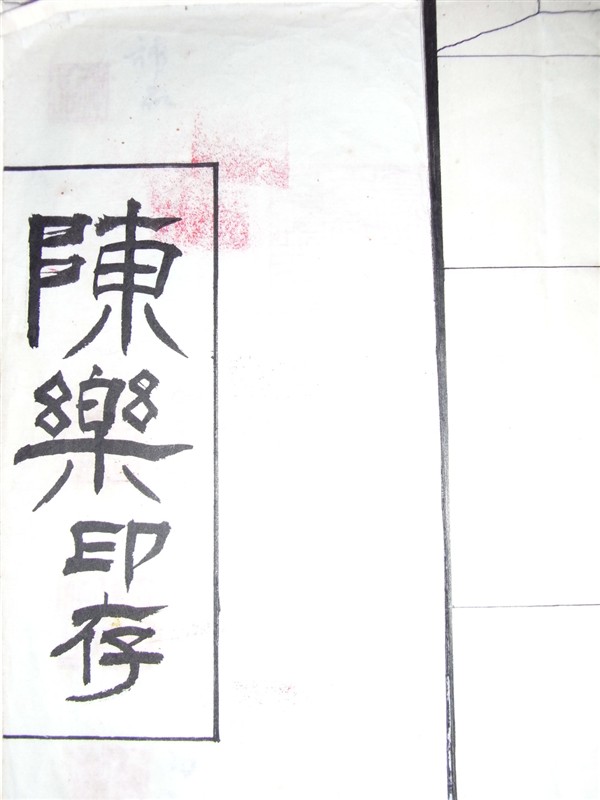 陳樂印存